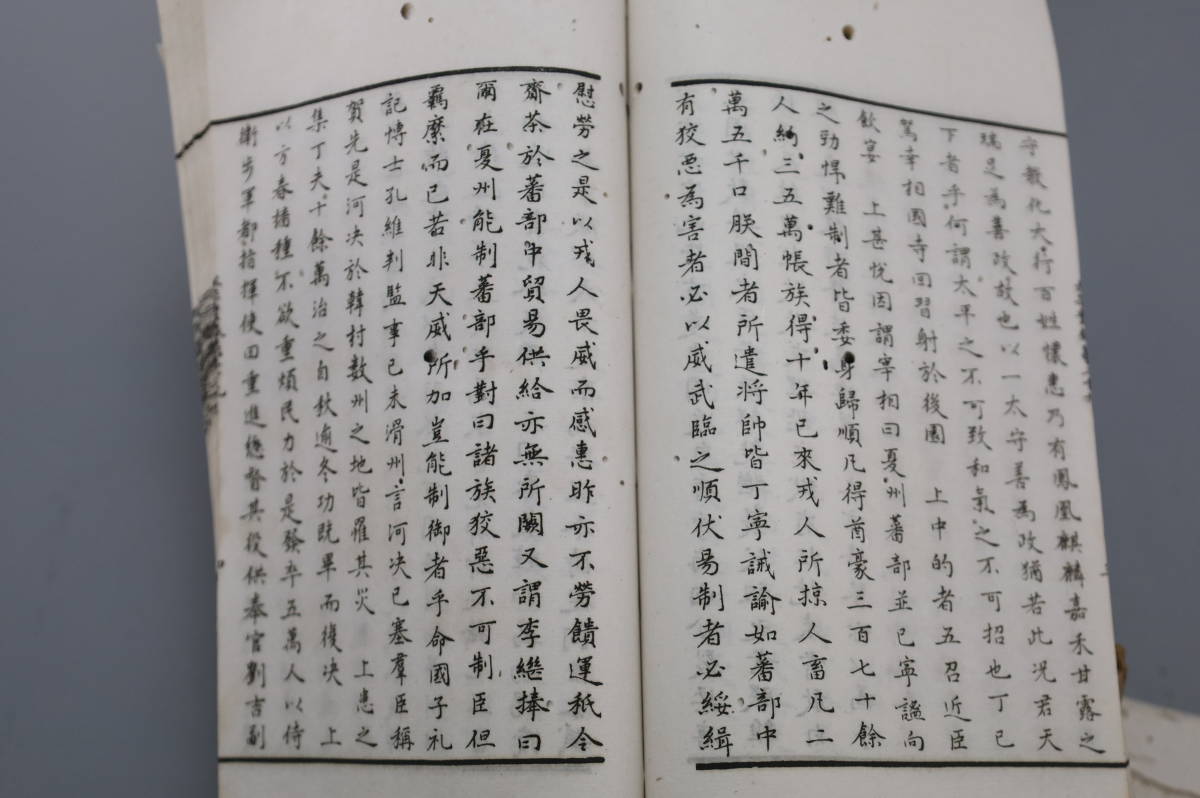 守教化大行百姓懷惠乃有鳳凰麒麟嘉禾甘露之
瑞足為善政故也以一太守善為政猶若此况君天
下者乎何謂太平之不可致和氣之不可招也丁巳
駕幸相國寺回習射於後園　上中的者五召近臣
飲宴　上甚悦因謂宰相曰夏州蕃部並已寧謐向
之勁悍難制者皆委身歸順凡得酋豪三百七十餘
人約三五萬帳族得十年已來戎人所掠人畜凡二
萬五千口朕間者所遣將帥皆丁寧誡諭如蕃部中
有狡惡為害者必以威武臨之順伏易制者必綏緝
慰勞之是以戎人畏威而感惠昨亦不勞饋運秖令
齎茶於蕃部中貿易供給亦無所闕又謂李繼捧曰
爾在夏州能制蕃部乎對曰諸族狡惡不可制臣但
羈縻而已若非天威所加豈能制御者乎命國子礼
記博士孔維判監事己未滑州言河决已塞羣臣稱
賀先是河决於韓村数州之地皆罹其災　上患之
集丁夫十餘萬治之自秋逾冬功既畢而復决　上
以方春播種不欲重煩民力於是發卒五萬人以侍
衛步軍都指揮使田重進緫督其役供奉官劉吉副